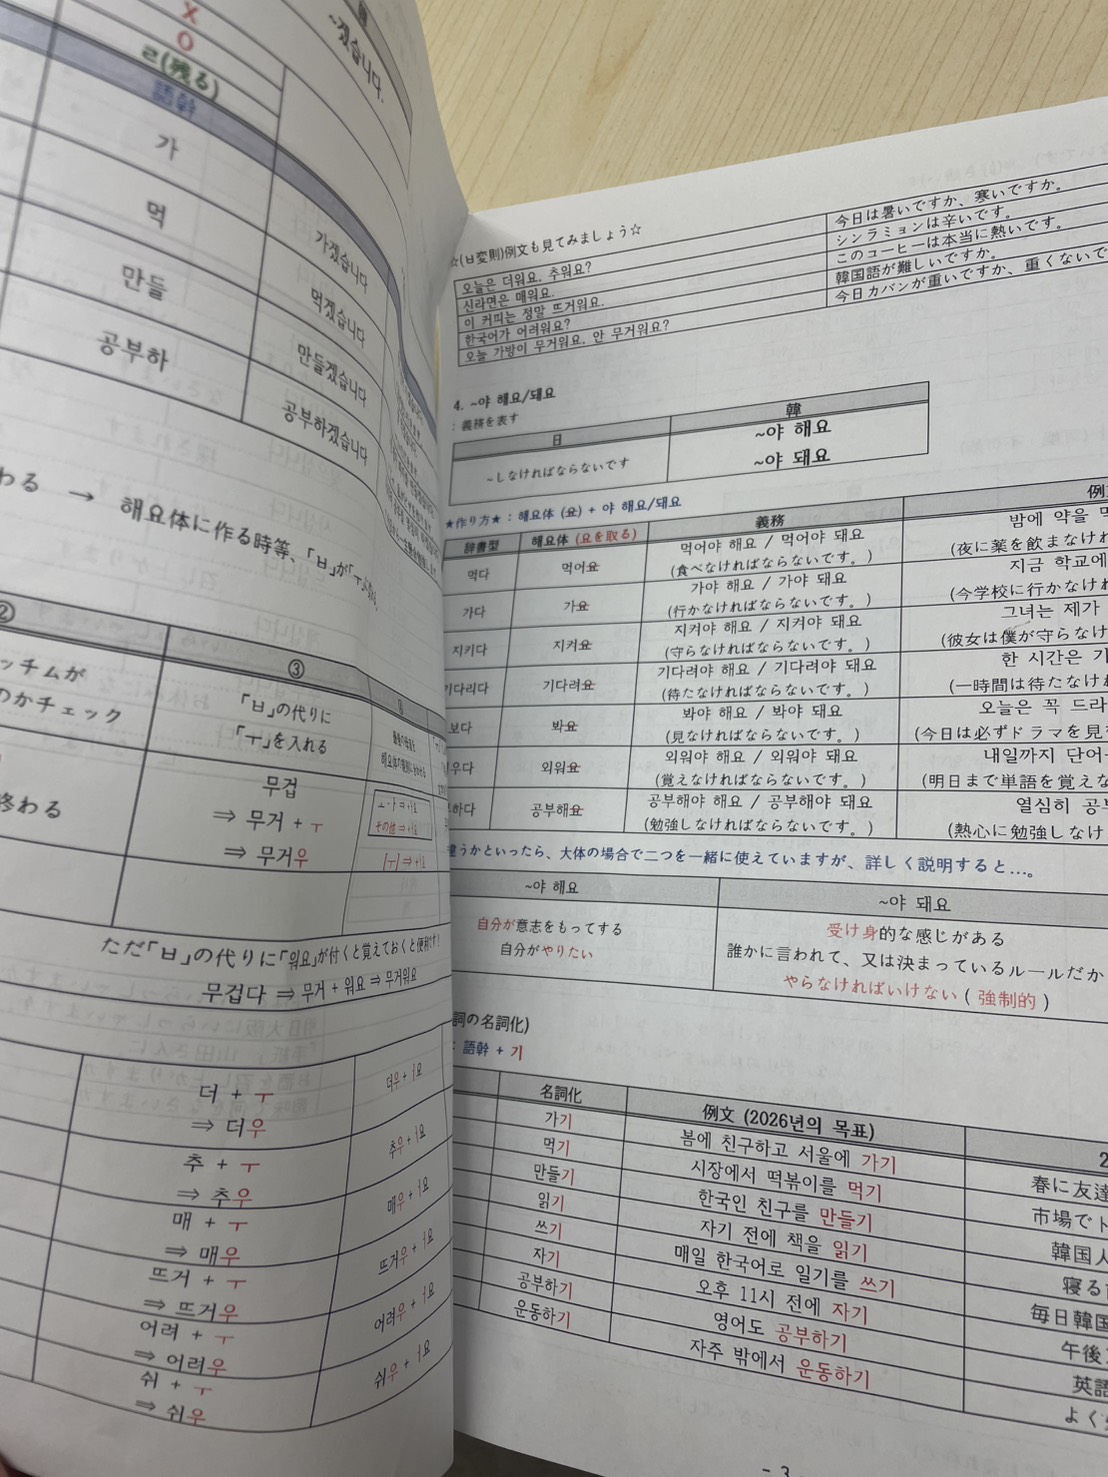 ~겠습니다.
X
O
ㄹ(残る)
語幹
가
가겠습니다
먹
먹겠습니다
만들
만들겠습니다
공부하
공부하겠습니다
わる → 해요体に作る時等、「ㅂ」が「ㅜ」
②
③
ッチムが
のかチェック
「ㅂ」の代りに
「ㅜ」を入れる
終わる
무겁
⇒ 무거 + ㅜ
⇒ 무거우
ただ「ㅂ」の代りに「워요」が付くと覚えておくと便利です!
무겁다 ⇒ 무거 + 워요 ⇒ 무거워요
더 + ㅜ
⇒ 더우
더우 + ㅓ요
추 + ㅜ
⇒ 추우
추우 + ㅓ요
매 + ㅜ
⇒ 매우
매우 + ㅓ요
뜨거 + ㅜ
⇒ 뜨거우
뜨거우 + ㅓ요
어려 + ㅜ
⇒ 어려우
어려우 + ㅓ요
쉬 + ㅜ
⇒ 쉬우
쉬우 + ㅓ요
☆(ㅂ変則)例文も見てみましょう☆
오늘은 더워요. 추워요? 今日は暑いですか、寒いですか。
신라면은 매워요. シンラミョンは辛いです。
이 커피는 정말 뜨거워요. このコーヒーは本当に熱いです。
한국어가 어려워요? 韓国語が難しいですか。
오늘 가방이 무거워요. 안 무거워요? 今日カバンが重いですか、重くないで
4. ~야 해요/돼요
: 義務を表す
日 韓
~しなければならないです
~야 해요
~야 돼요
★作り方★ : 해요体 (요) + 야 해요/돼요
辞書型 해요体 (요を取る) 義務 例
먹다 먹어요 먹어야 해요 / 먹어야 돼요 밤에 약을 먹
(食べなければならないです。) (夜に薬を飲まなけれ
가다 가요 가야 해요 / 가야 돼요 지금 학교에
(行かなければならないです。) (今学校に行かなけれ
지키다 지켜요 지켜야 해요 / 지켜야 돼요 그녀는 제가
(守らなければならないです。) (彼女は僕が守らなけ
기다리다 기다려요 기다려야 해요 / 기다려야 돼요 한 시간은 기
(待たなければならないです。) (一時間は待たなけれ
보다 봐요 봐야 해요 / 봐야 돼요 오늘은 꼭 드라
(見なければならないです。) (今日は必ずドラマを見な
우다 외워요 외워야 해요 / 외워야 돼요 내일까지 단어
(覚えなければならないです。) (明日まで単語を覚えな
하다 공부해요 공부해야 해요 / 공부해야 돼요 열심히 공부
(勉強しなければならないです。) (熱心に勉強しなけ
違うかといったら、大体の場合で二つを一緒に使えていますが、詳しく説明すると…。
~야 해요 ~야 돼요
自分が意志をもってする
自分がやりたい
受け身的な感じがある
誰かに言われて、又は決まっているルールだか
やらなければいけない ( 強制的 )
詞の名詞化)
: 語幹 + 기
名詞化 例文 (2026년의 목표) 2
가기 봄에 친구하고 서울에 가기 春に友達
먹기 시장에서 떡볶이를 먹기 市場でト
만들기 한국인 친구를 만들기 韓国人
읽기 자기 전에 책을 읽기 寝る
쓰기 매일 한국어로 일기를 쓰기 毎日韓国
자기 오후 11시 전에 자기 午後
공부하기 영어도 공부하기 英語
운동하기 자주 밖에서 운동하기 よく
- 3